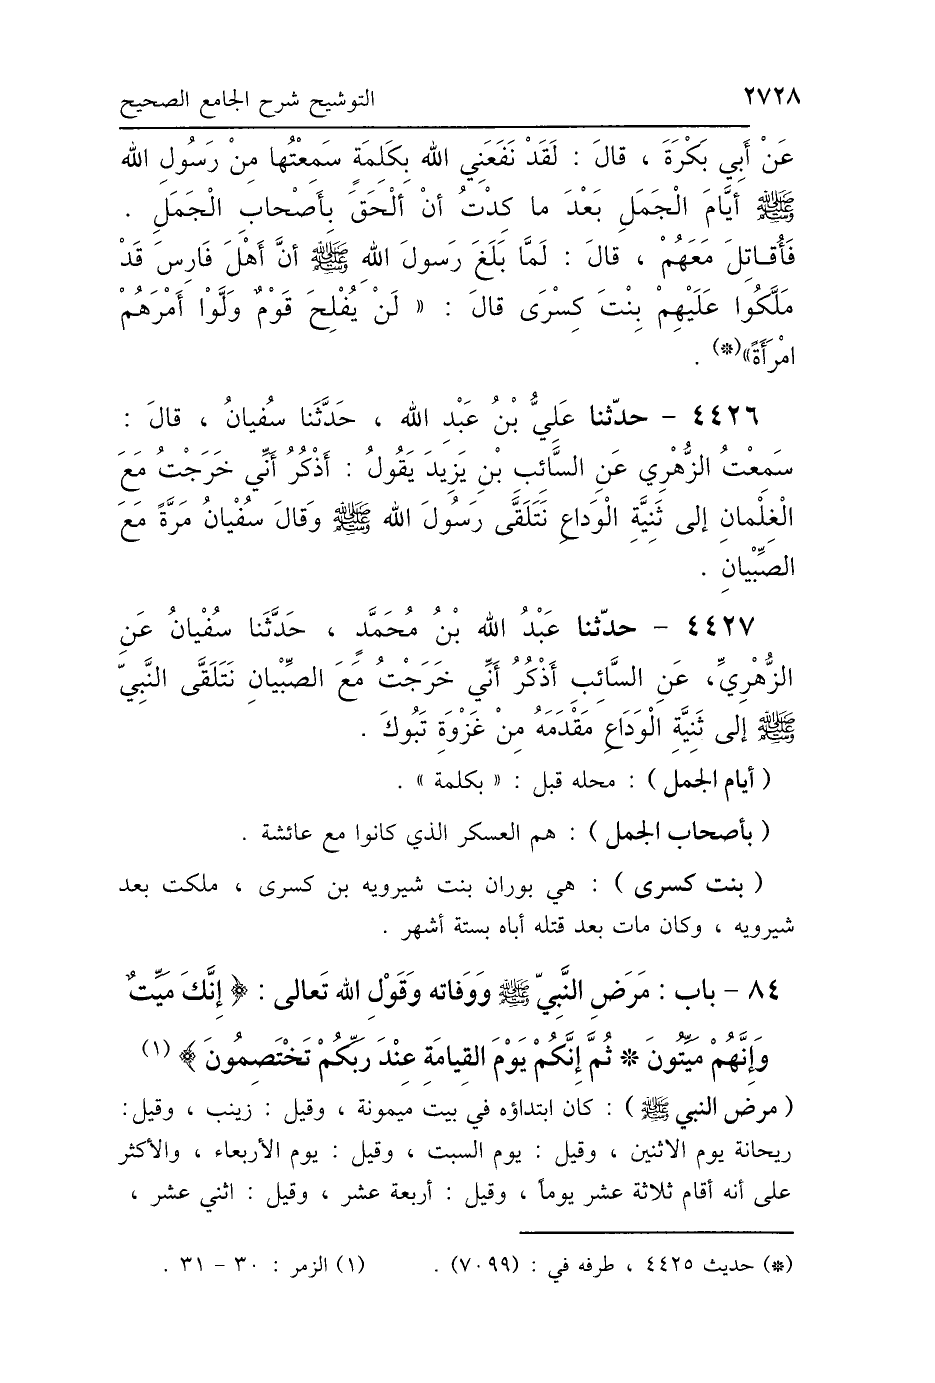 ٢٧٢٨ التوشيح شرح الجامع الصحيح
عَنْ أَبِي بَكْرَةَ ، قالَ : لَقَدْ نَفَعَنِي الله بِكَلِمَةٍ سَمِعْتُها مِنْ رَسُولِ الله
ﷺ أيَّامَ الْجَمَلِ بَعْدَ ما كِدْتُ أنْ ألْحَقَ بِأصْحابِ الْجَمَلِ .
فَأُقـاتِلَ مَعَهُمْ ، قالَ : لَمَّا بَلَغَ رَسولَ اللهِ ﷺ أنَّ أهْلَ فَارِسَ قَدْ
مَلَّكُوا عَلَيْهِمْ بِنْتَ كِسْرَى قالَ : « لَنْ يُفْلِحَ قَوْمٌ وَلَّوْا أمْرَهُمْ
امْرَأَةً»(*) .
٤٤٢٦ - حدّثنا عَلِيُّ بْنُ عَبْدِ الله ، حَدَّثَنا سُفيانُ ، قالَ :
سَمِعْتُ الزُّهْرِي عَنِ السَّائِبِ بْنِ يَزِيدَ يَقُولُ : أَذْكُرُ أَنِّي خَرَجْتُ مَعَ
الْغِلْمانِ إلى ثَنِيَّةِ الْوَداعِ نَتَلَقَّى رَسُولَ الله ﷺ وَقالَ سُفْيانُ مَرَّةً مَعَ
الصِّبْيانِ .
٤٤٢٧ - حدّثنا عَبْدُ الله بْنُ مُحَمَّدٍ ، حَدَّثَنا سُفْيانُ عَنِ
الزُّهْرِيِّ، عَنِ السَّائِبِ أَذْكُرُ أَنِّي خَرَجْتُ مَعَ الصِّبْيانِ نَتَلَقَّى النَّبِيّ
ﷺ إلى ثَنِيَّةِ الْوَدَاعِ مَقْدَمَهُ مِنْ غَزْوَةِ تَبُوكَ .
( أيام الجمل ) : محله قبل : « بكلمة » .
( بأصحاب الجمل ) : هم العسكر الذي كانوا مع عائشة .
( بنت كسرى ) : هي بوران بنت شيرويه بن كسرى ، ملكت بعد
شيرويه ، وكان مات بعد قتله أباه بستة أشهر .
٨٤ - باب : مَرَضِ النَّبِيّ ﷺ وَوَفاتِه وَقَوْلِ الله تَعالى : ﴿ إِنَّكَ مَيِّتٌ
وَإِنَّهُمْ مَيِّتُونَ * ثُمَّ إِنَّكُمْ يَوْمَ القِيامَةِ عِنْدَ رَبِّكُمْ تَخْتَصِمُونَ ﴾ (١)
( مرض النبي ﷺ ) : كان ابتداؤه في بيت ميمونة ، وقيل : زينب ، وقيل:
ريحانة يوم الاثنين ، وقيل : يوم السبت ، وقيل : يوم الأربعاء ، والأكثر
على أنه أقام ثلاثة عشر يوماً ، وقيل : أربعة عشر ، وقيل : اثني عشر ،
(*) حديث ٤٤٢٥ ، طرفه في : (٧٠٩٩) . (١) الزمر : ٣٠ - ٣١ .